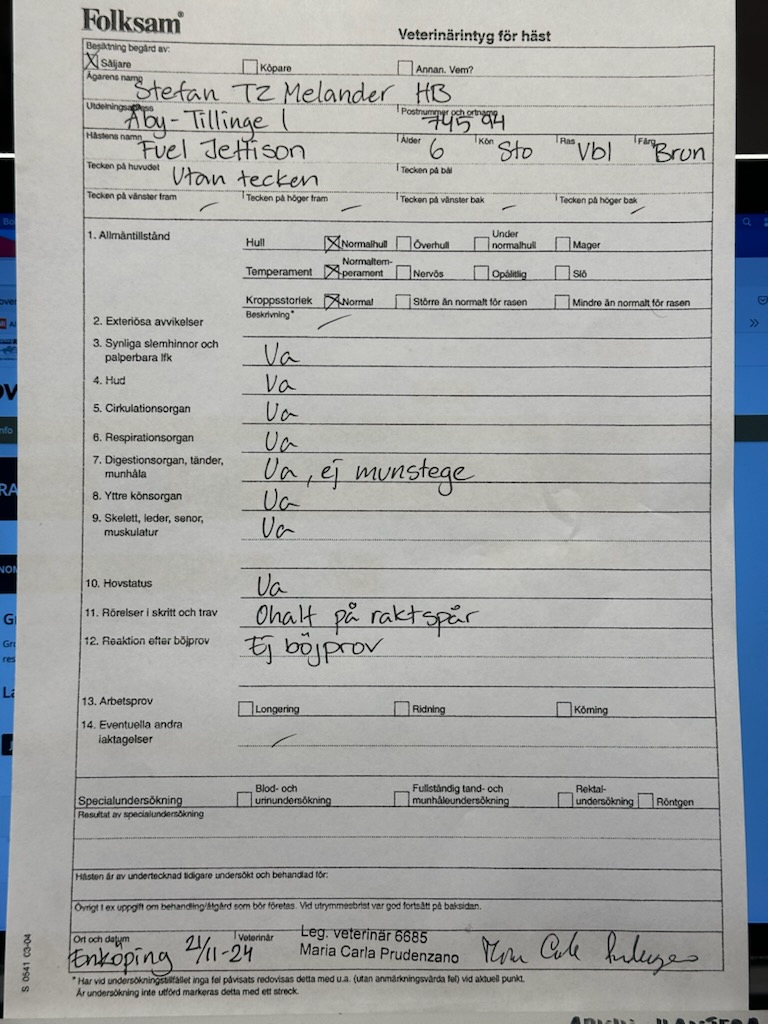 Folksam®
Veterinärintyg för häst
Besiktning begärd av:
Säljare Köpare Annan. Vem?
Ägarens namn
Stefan TZ Melander HB
Utdelningsadress Postnummer och ortnamn
Åby-Tillinge 1 745 94
Hästens namn Ålder Kön Ras Färg
Fuel Jettison 6 Sto Vbl Brun
Tecken på huvudet Tecken på bål
Utan tecken
Tecken på vänster fram Tecken på höger fram Tecken på vänster bak Tecken på höger bak
1. Allmäntillstånd
Hull Normalhull Överhull Under normalhull Mager
Temperament Normaltem-perament Nervös Opålitlig Slö
Kroppsstorlek Normal Större än normalt för rasen Mindre än normalt för rasen
Beskrivning*
2. Exteriösa avvikelser
3. Synliga slemhinnor och
palperbara lfk Ua
4. Hud Ua
5. Cirkulationsorgan Ua
6. Respirationsorgan Ua
7. Digestionsorgan, tänder,
munhåla Ua, ej munstege
8. Yttre könsorgan Ua
9. Skelett, leder, senor,
muskulatur Ua
10. Hovstatus Ua
11. Rörelser i skritt och trav Ohalt på rakt spår
12. Reaktion efter böjprov Ej böjprov
13. Arbetsprov Longering Ridning Körning
14. Eventuella andra
iaktagelser
Specialundersökning Blod- och urinundersökning Fullständig tand- och munhåleundersökning Rektal-undersökning Röntgen
Resultat av specialundersökning
Hästen är av undertecknad tidigare undersökt och behandlad för:
Övrigt t ex uppgift om behandling/åtgärd som bör företas. Vid utrymmesbrist var god fortsätt på baksidan.
Ort och datum Veterinär
Enköping 21/11-24
Leg. veterinär 6685
Maria Carla Prudenzano
* Har vid undersökningstillfället inga fel påvisats redovisas detta med u.a. (utan anmärkningsvärda fel) vid aktuell punkt.
Är undersökning inte utförd markeras detta med ett streck.
S 0541 03-04